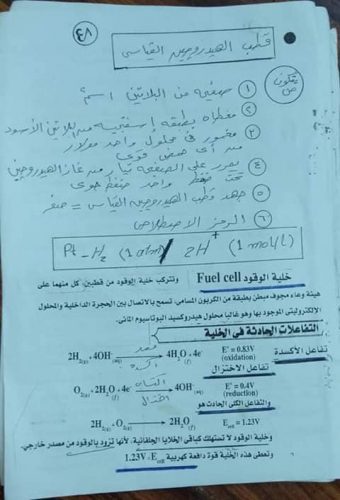 ٤٨
قطب الهيدروجين القياسى
يتكون من
① صفيحة من البلاتين ١سم٢
② مغطاه بطبقة إسفنجية من البلاتين الأسود
③ مغمور فى محلول واحد مولار
من أى حمض قوى
④ يمرر على الصفيحة تيار من غاز الهيدروجين
تحت ضغط واحد ضغط جوى
⑤ جهد قطب الهيدروجين القياسى = صفر
⑥ الرمز الاصطلاحى
Pt - H2 (1 atm) / 2H+ (1 mol/L)
خلية الوقود Fuel cell وتتركب خلية الوقود من قطبين، كل منهما على
هيئة وعاء مجوف مبطن بطبقة من الكربون المسامى، تسمح بالاتصال بين الحجرة الداخلية والمحلول
الالكتروليتى الموجود بها وهو غالبا محلول هيدروكسيد البوتاسيوم المائى.
التفاعلات الحادثة فى الخلية
تفاعل الأكسدة
2H2(g) + 4OH-(aq) → 4H2O(l) + 4e- E° = 0.83V
أكسدة (oxidation)
تفاعل الاختزال
O2(g) + 2H2O(l) + 4e- → 4OH-(aq) E° = 0.4V
اختزال (reduction)
والتفاعل الكلى الحادث هو
2H2(g) + O2(g) → 2H2O(l) Ecell = 1.23V
وخلية الوقود لا تستهلك كباقى الخلايا الجلفانية، لأنها تزود بالوقود من مصدر خارجى.
وتعطى هذه الخلية قوة دافعة كهربية Ecell = 1.23V